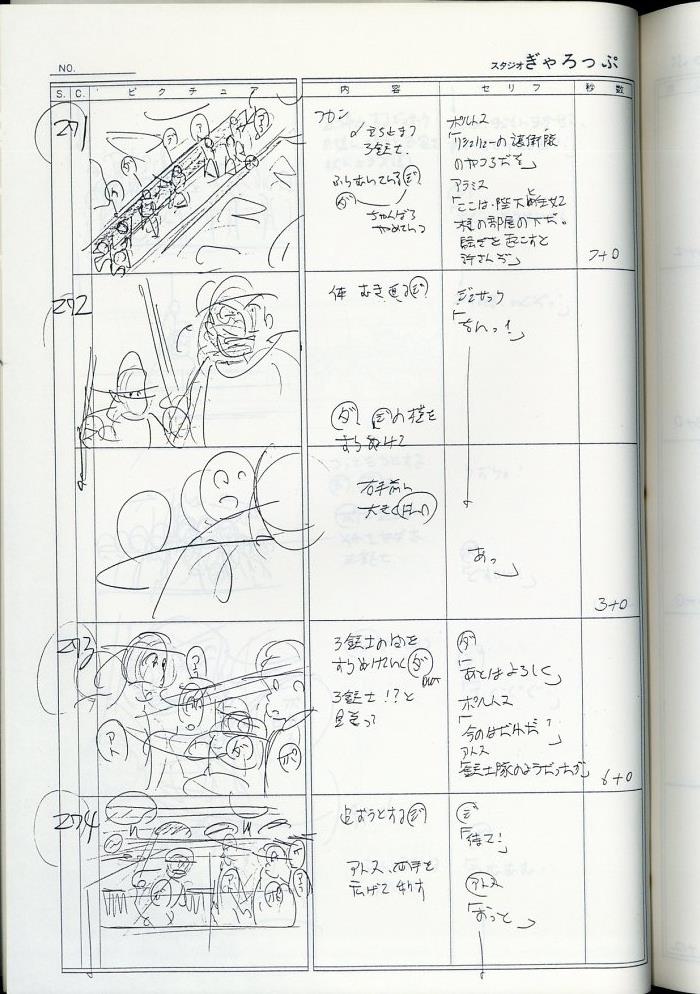 NO.
スタジオぎゃろっぷ
S. C. ピクチュア 内容 セリフ 秒数
271
フカン
立ち止まる
3銃士
ふりむいている ジ
ダ
ちゃんばら
やめている
ポルトス
「リシュリューの護衛隊
のやつらだぞ」
アラミス
「ここは、陛下と王女
様の部屋の下だ。
騒ぎを起こすと
許さんぞ」
7+0
272
体 むき直るジ
ジュサック
「むんっ!
ダ、ジの横を
すりぬけて
右手前に
大きく
あっ」
3+0
273
ア
アト
ダ
ポ
3銃士の間を
すりぬけていくダ
OUT
3銃士!?と
見送って
ダ
「あとはよろしく」
ポルトス
「今のはだれだ?
アトス
銃士隊のようだったが」
6+0
274
追おうとするジ
アトス、両手を
広げて
ジ
「待て!」
アトス
「おっと」